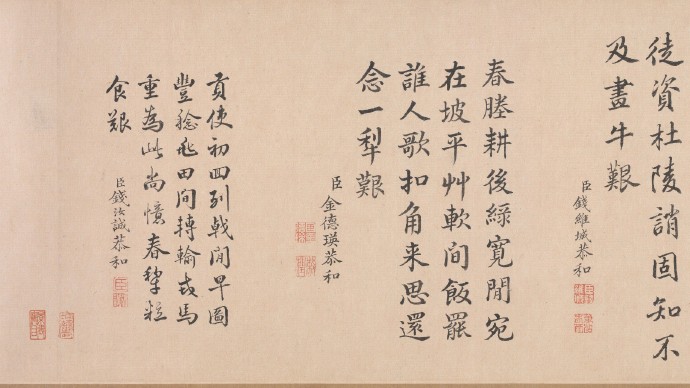 徒資杜陵誚固知不
及畫牛艱
臣錢維城恭和
春塍耕後綠寬閒宛
在坡平艸軟間飯罷
誰人歌扣角来思還
念一犁艱
臣金德瑛恭和
貢使初回列戟閒早圖
豐稔兆田間轉輸戎馬
重為此尚憶春犁粒
食艱
臣錢汝誠恭和